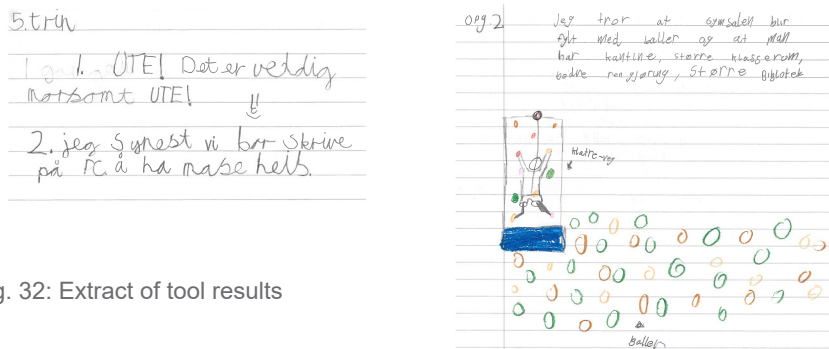 5. trin
1. UTE! Det er veldig
morsomt UTE!
2. jeg synest vi bør skrive
på PC å ha mase hels.
g. 32: Extract of tool results
opg. 2
Jeg tror at Gymsalen blir
fylt med baller og at man
har kantine, større klasserom,
bedre rengjøring, Større Bibliotek
klatre-veg
baller